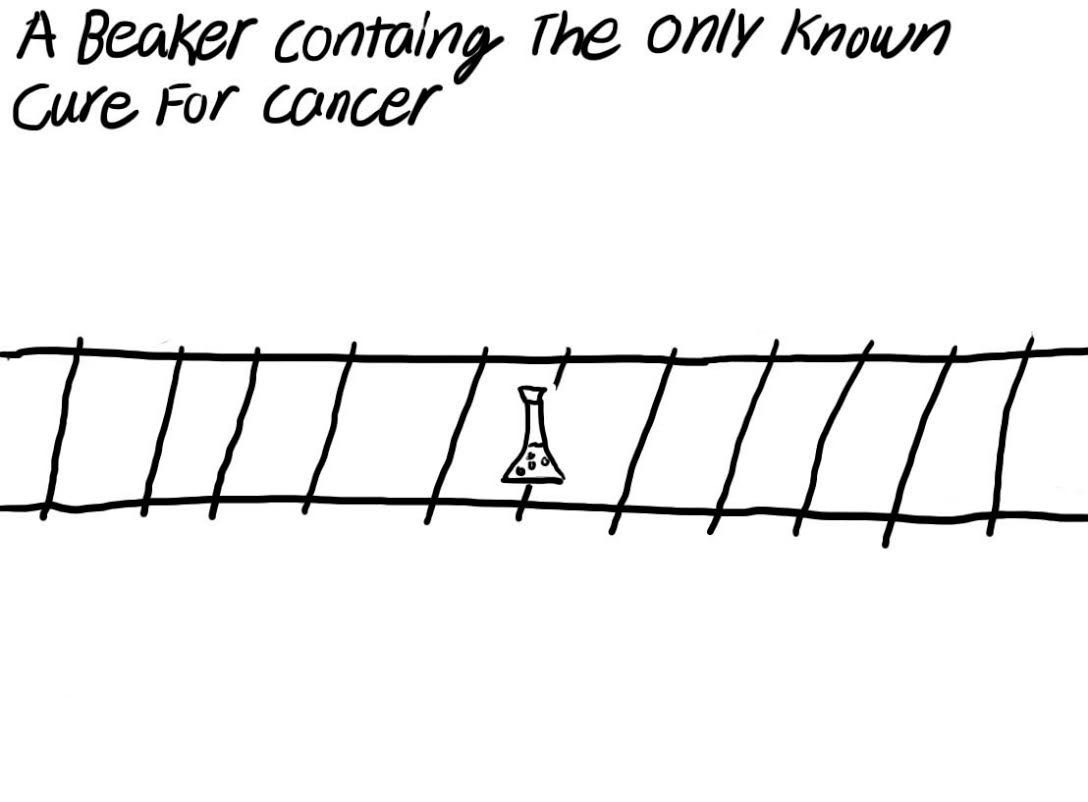 A Beaker containg The only Known
Cure For cancer